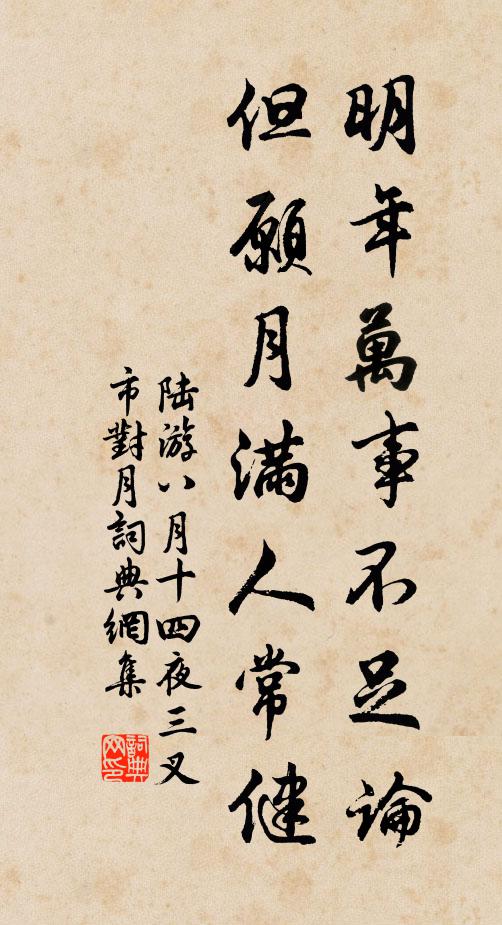 明年萬事不足論
但願月滿人常健
陸游八月十四夜三叉
市對月詞典網集
詞典
网印